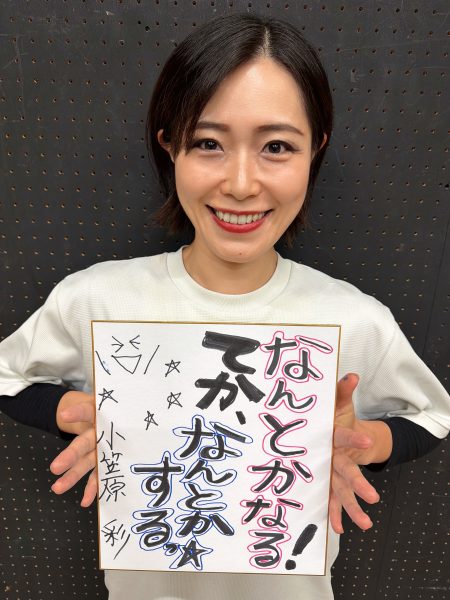 なんとかなる!
てか、なんとか
する☆
小笠原 彩